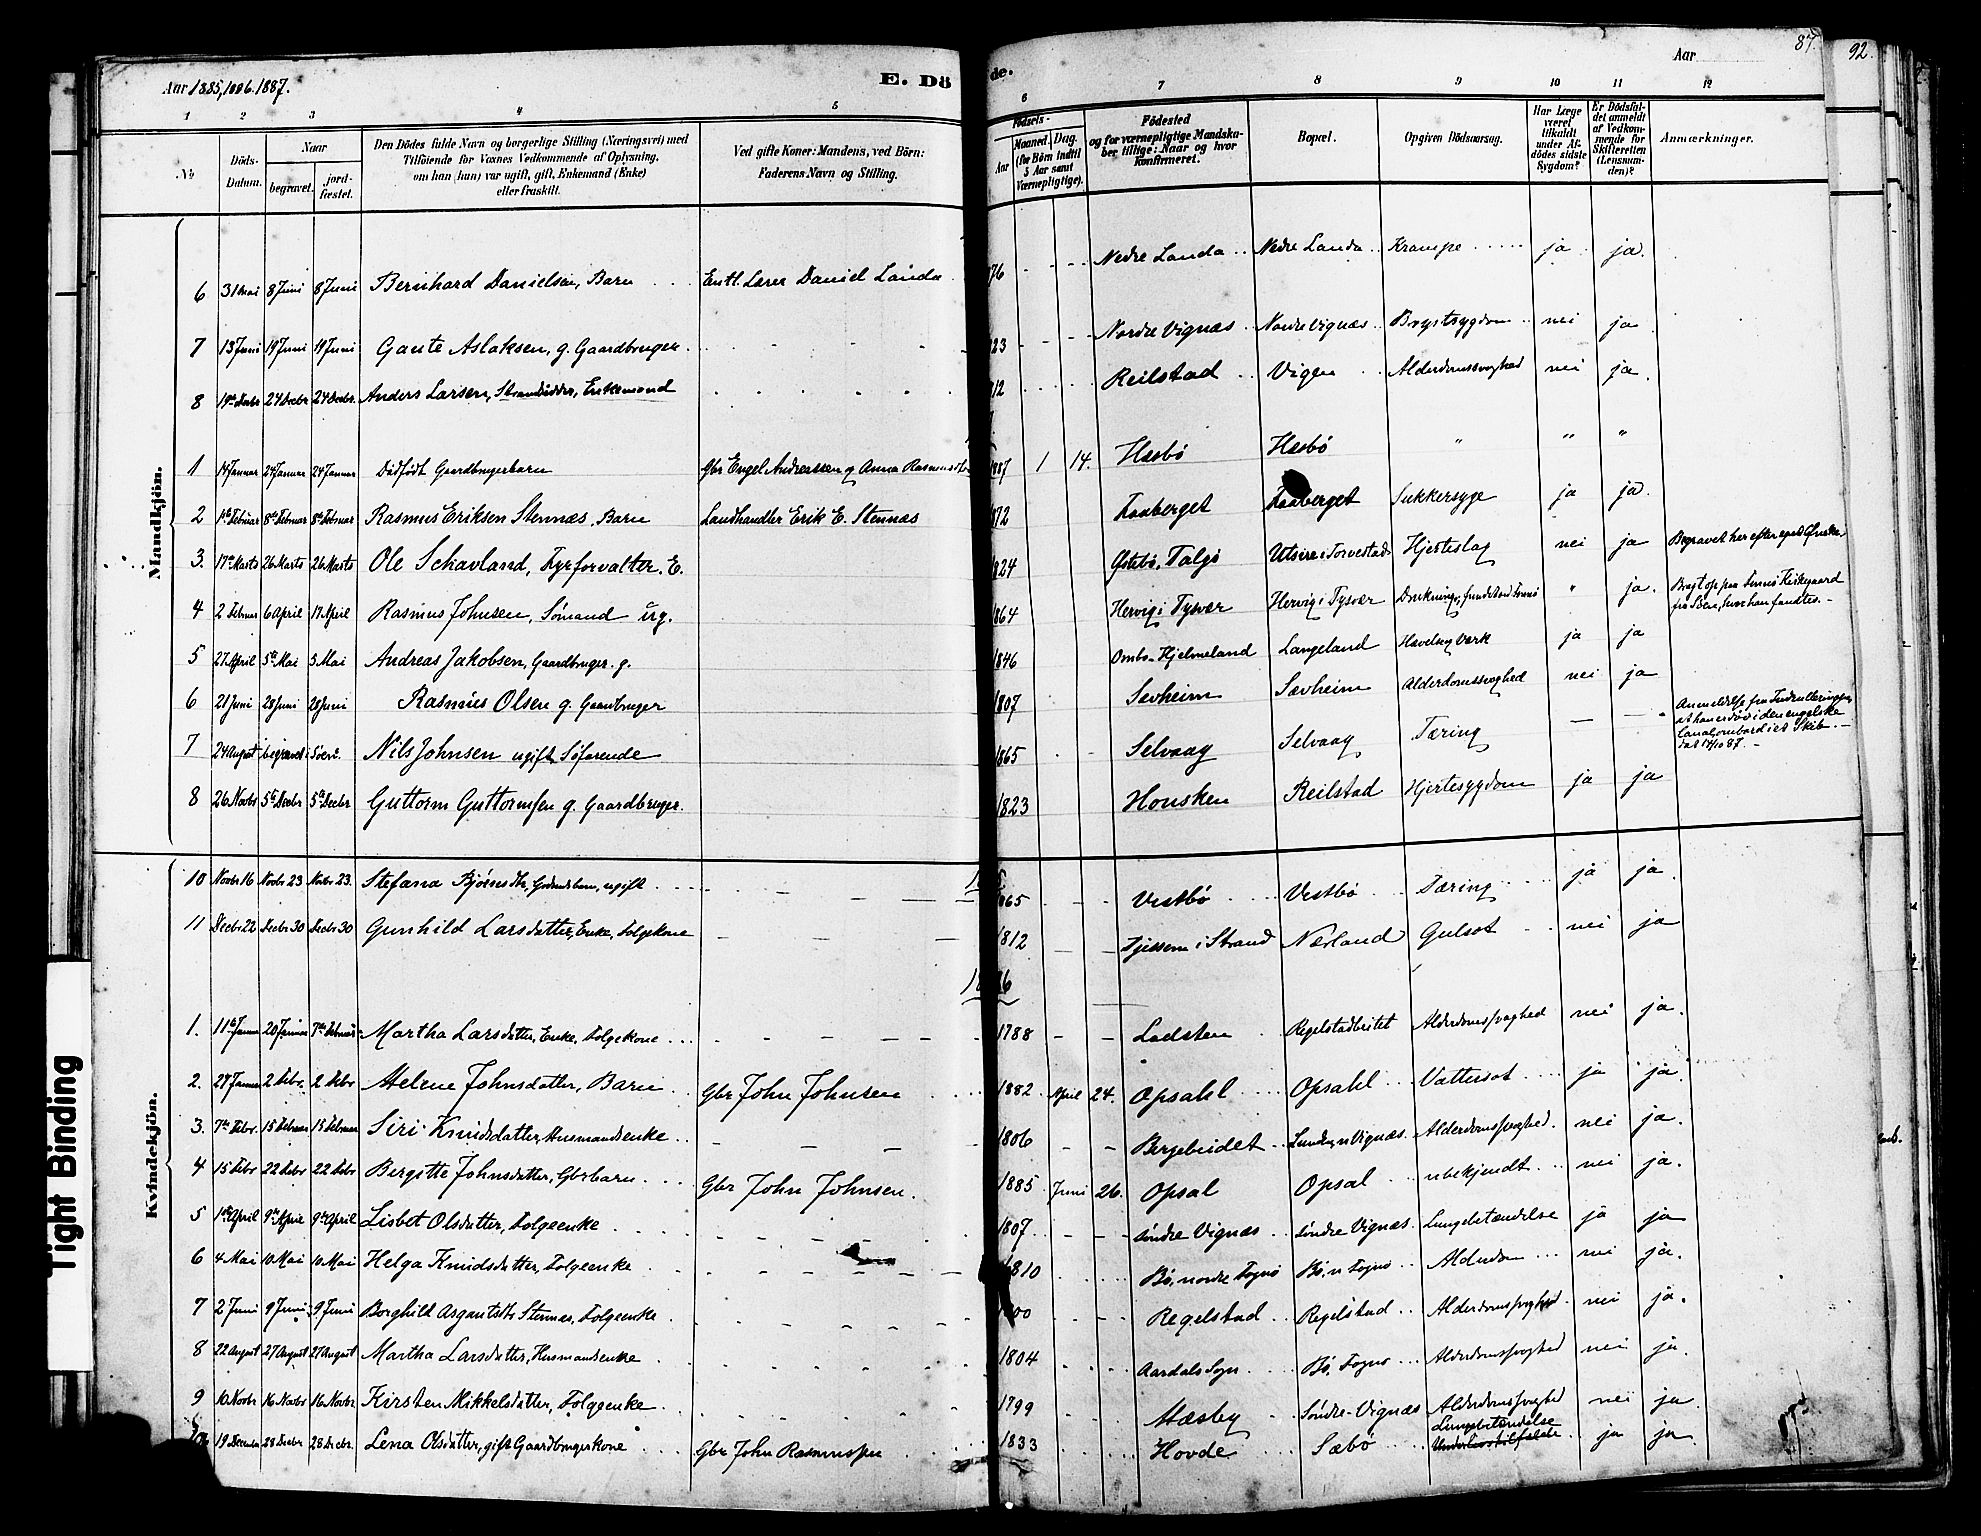 Aar 1885, 1886, 1887.
E. Dö
de.
Aar
87.
92
1 2 3 4 5 6 7 8 9 10 11 12
No
Döds-Datum.
Naar
begravet.
jord-fæstet.
Den Dödes fulde Navn og borgerlige Stilling (Næringsvei) med
Tilföiende for Voxnes Vedkommende af Oplysning,
om han (hun) var ugift, gift, Enkemand (Enke)
eller fraskilt.
Ved gifte Koner: Mandens, ved Börn:
Faderens Navn og Stilling.
Födsels-
Aar
Maaned. Dag.
(for Börn indtil
5 Aar samt
Værnepligtige).
Födested
og for værnepligtige Mandska-
ber tillige: Naar og hvor
konfirmeret.
Bopæl.
Opgiven Dödsaarsag.
Har Læge
været
tilkaldt
under Af-
dödes sidste
Sygdom?
Er Dödsfal-
det anmeldt
af Vedkom-
mende for
Skifteretten
(Lensman-
den)?
Anmærkninger.
Mandkjön.
6 31 Mai 8 Juni 8 Juni Bernhard Danielsen, Barn Entl. Lærer Daniel Landa 76 Nedre Landa Nedre Landa Krampe ja ja.
7 13 Juni 19 Juni 19 Juni Gaute Aslaksen, g. Gaardbruger 23 Nordre Vignæs Nordre Vignæs Brystsygdom nei ja
8 19de Decbr 24 Decbr 24 Decbr. Anders Larsen, Strandsidder, Enkemand 12 Reilstad Vigen Alderdomssvaghed nei ja.
1 14 Januar 24 Januar 24 Januar Dødfødt Gaardbrugerbarn Gbr Engel Andreassen og Anna Rasmusdtr 1887 1 14. Hasbø Hasbø " " "
2 1ste Februar 8de Februar 8de Februar Rasmus Eriksen Stennæs, Barn Landhandler Erik E. Stennæs 1872 ja ja. Sukkersyge
3. 17de Marts 26 Marts 26 Marts Ole Schavland, Fyrforvalter. E. 1824 Talgø Utsire i Torvestad Hjerteslag nei ja Begravet her efter
4 2 Februar 6 April 17 April Rasmus Johnsen, Sømand ug. 1864 Hervig i Tysvær Hervig i Tysvær " ja. Bragt op paa Kirkegaard
fra Søen, hvor han fandtes. —
5 27 April 5te Mai 5 Mai Andreas Jakobsen, Gaardbruger. g. 1846 Ombo - Hjelmeland Langeland Værk ja ja
6 21 Juni 28 Juni 28 Juni Rasmus Olsen g. Gaardbruger 1807 Sævheim Sævheim Alderdomssvaghed nei ja
7 24 August begravet i Søen. Nils Johnsen ugift Søfarende 1865 Selvaag Selvaag Tæring — — Anmeldelse fra Indrulleringen,
at han er død i den engelske
Canal ombord i et Skib. —
8 26 Novbr 5te Decbr 5te Decbr Guttorm Guttormsen g. Gaardbruger. 1823 Housken Reilstad Hjertesygdom ja ja
Kvindekjön.
10 Novbr 16 Novbr 23 Novbr 23. Stefana Bjørnsdtr, ugift 1865 Vestbø Vestbø Tæring ja ja.
11 Decbr 22 Decbr 30 Decbr 30 Gunhild Larsdatter, Enke, Folgekone 1812 i Strand Nærland Gulsot nei ja
1886
1. 11te Januar 20 Januar 7de Februar Martha Larsdatter, Enke, Folgekone 1788 Ladsten Alderdomssvaghed nei ja.
2. 27 Januar 2 Febr. 2 Febr Helene Johnsdatter, Barn Gbr John Johnsen 1882 April 24. Opsahl Opsahl Vattersot ja ja.
3. 7de Febr. 15 Februar 15 Februar Siri Knudsdatter, Husmandsenke 1806 Alderdomssvaghed nei ja.
4 15 Febr 22 Febr 22 Febr Bergitte Johnsdatter, Gbrbarn Gbr John Johnsen. 1885 Juni 26. Opsal Opsal ubekjendt nei ja.
5 1ste April 9de April 9de April Lisbet Olsdatter, Folgeenke 1807. søndre Vignæs Søndre Vignæs Lungebetændelse ja ja
6 4 Mai 10 Mai 10 Mai Helga Knudsdatter, Folgeenke 1810 Bø, nordre Fogn Bø, n Fogn Alderdom nei ja.
7 2 Juni 9 Juni 9 Juni Borghild Asgautsdtr Stennæs, Folgeenke 1800 Regelstad Regelstad Alderdomssvaghed nei ja.
8 22 August 27 August 27 August Martha Larsdatter, Husmandsenke 1804 Aardals Sogn Bø, Fogn Alderdomssvaghed nei ja.
9 10 Novbr 16 Novbr 16 Novbr Kirsten Mikkelsdatter, Folgeenke 1799 Mæsby Søndre-Vignæs Alderdomssvaghed nei ja
10 19 December 28 Decbr 28 Decbr. Lena Olsdatter, gift Gaardbrugerkone Gbr John Rasmussen 1833 Hovde Sæbø Lungebetændelse ja ja.
Tight Binding